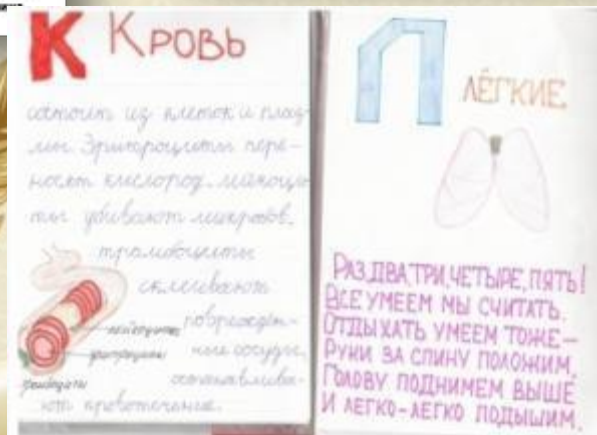 К Кровь
состоит из клеток и плаз-
мы. Эритроциты пере-
носят кислород. лейкоци-
ты убивают микробов,
тромбоциты
склеивают
поврежден-
ные сосуды,
останавлива-
ют кровотечение.
лейкоциты
эритроциты
тромбоциты
Л ЛЁГКИЕ
РАЗ,ДВА,ТРИ,ЧЕТЫРЕ,ПЯТЬ!
ВСЕ УМЕЕМ МЫ СЧИТАТЬ.
ОТДЫХАТЬ УМЕЕМ ТОЖЕ–
РУКИ ЗА СПИНУ ПОЛОЖИМ,
ГОЛОВУ ПОДНИМЕМ ВЫШЕ
И ЛЕГКО-ЛЕГКО ПОДЫШИМ.